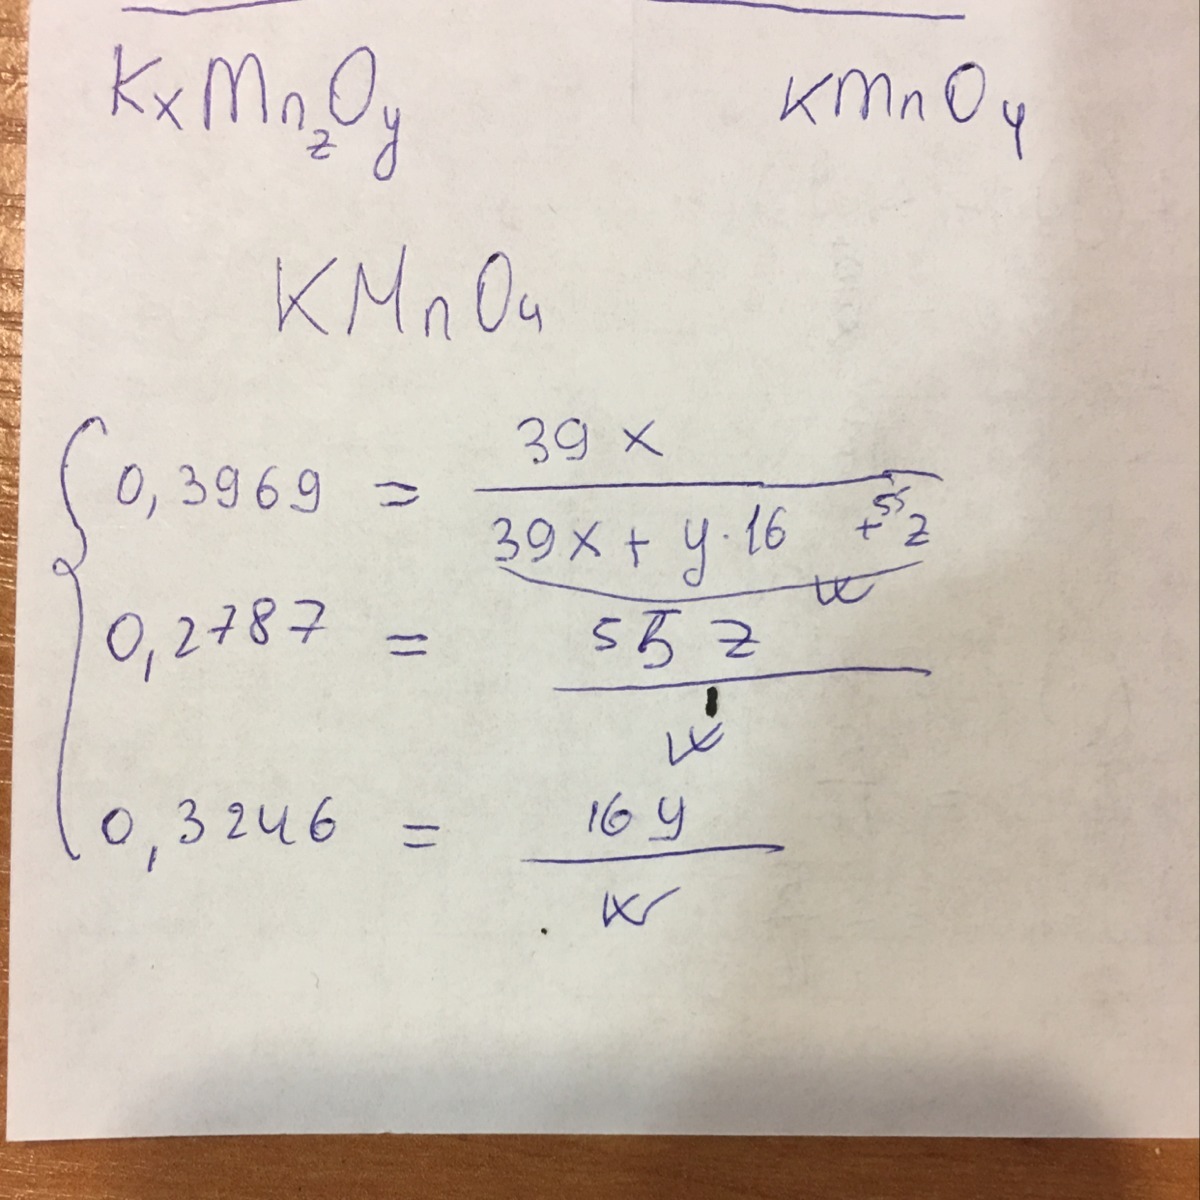 KxMnzOy KMnOy
KMnO4
0,3969 = 39x / 39x + y·16 + 55z
w
0,2787 = 55z / w
0,3246 = 16y / w